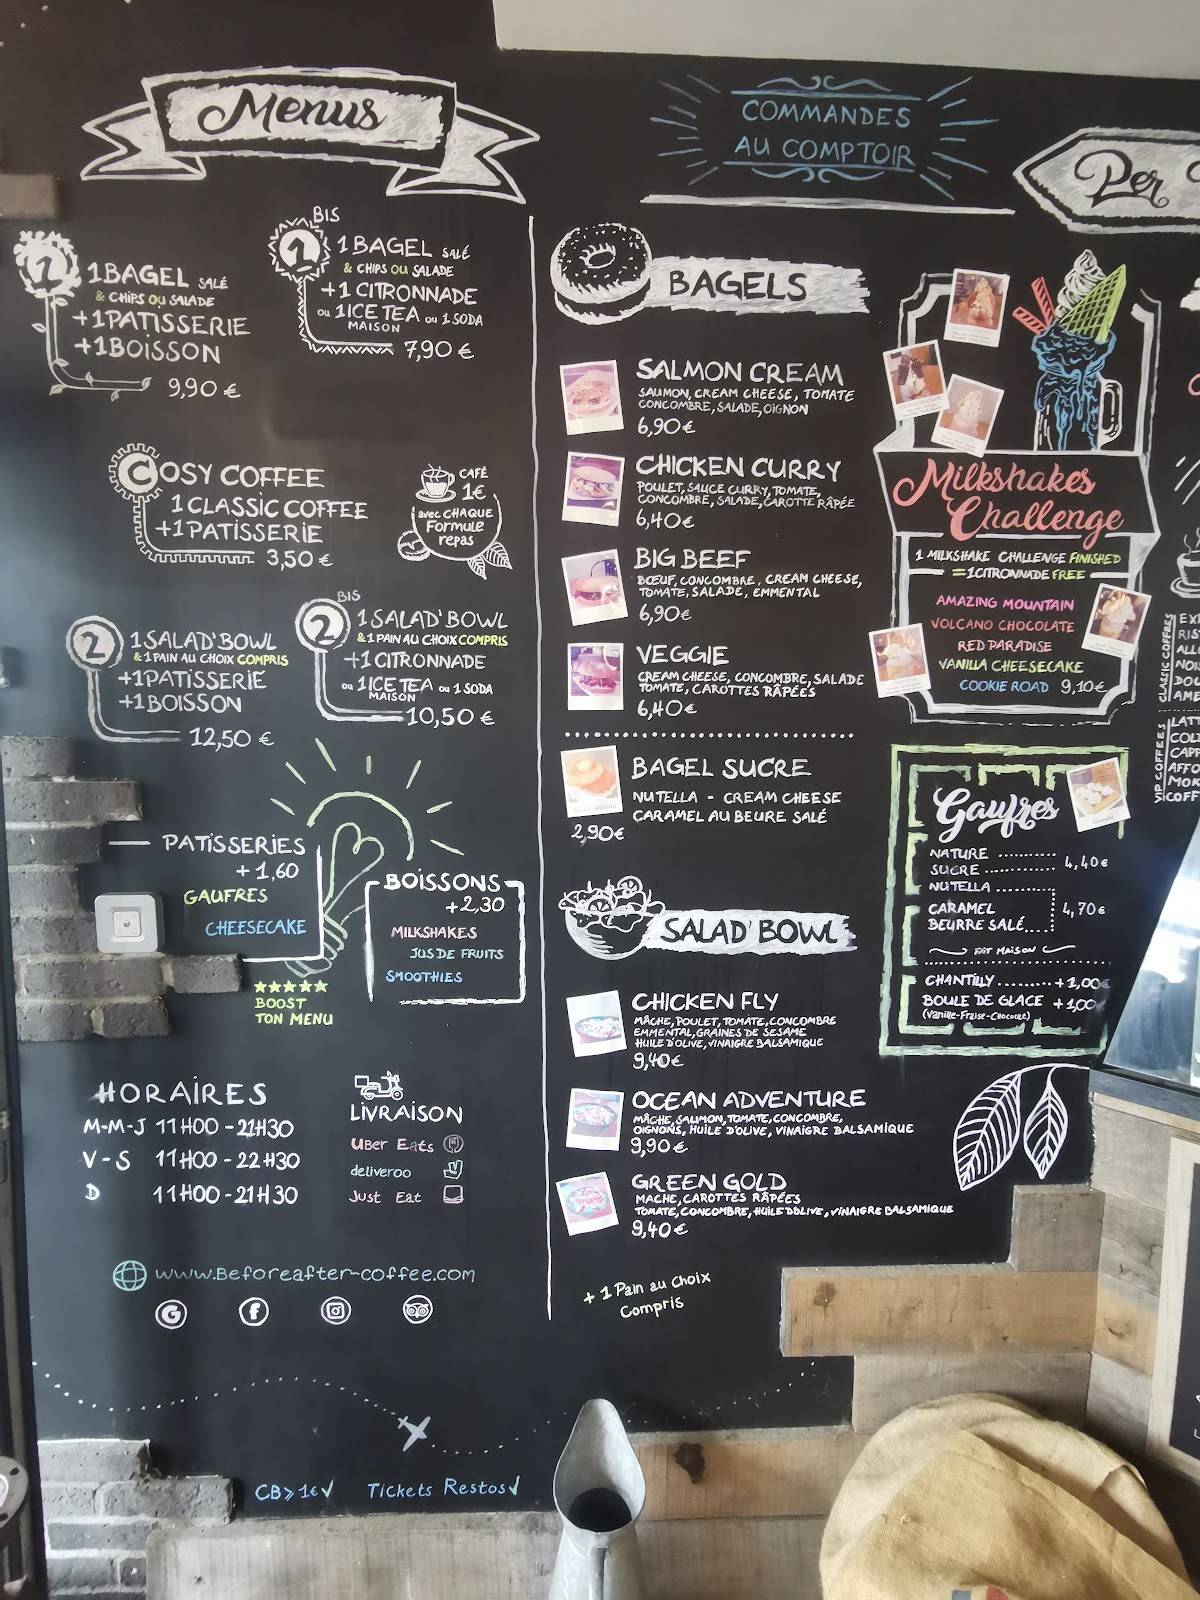 Menus
COMMANDES
AU COMPTOIR
Per
1
1 BAGEL SALÉ
& CHIPS OU SALADE
+1 PATISSERIE
+1 BOISSON
9,90 €
BIS
1
1 BAGEL SALÉ
& CHIPS OU SALADE
+1 CITRONNADE
OU 1 ICE TEA OU 1 SODA
MAISON
7,90 €
COSY COFFEE
1 CLASSIC COFFEE
+1 PATISSERIE
3,50 €
CAFÉ
1€
avec CHAQUE
Formule
repas
2
1 SALAD'BOWL
& 1 PAIN AU CHOIX COMPRIS
+1 PATISSERIE
+1 BOISSON
12,50 €
BIS
2
1 SALAD'BOWL
& 1 PAIN AU CHOIX COMPRIS
+1 CITRONNADE
OU 1 ICE TEA OU 1 SODA
MAISON
10,50 €
PATISSERIES
+ 1,60
GAUFRES
CHEESECAKE
BOISSONS
+2,30
MILKSHAKES
JUS DE FRUITS
SMOOTHIES
BOOST
TON MENU
HORAIRES
M-M-J 11H00 - 21H30
V - S 11H00 - 22H30
D 11H00 - 21H30
LIVRAISON
UBER Eats
deliveroo
JUST Eat
www.Beforeafter-coffee.com
CB ⩾ 1€ ✓ Tickets Restos ✓
BAGELS
SALMON CREAM
SAUMON, CREAM CHEESE, TOMATE
CONCOMBRE, SALADE, OIGNON
6,90 €
CHICKEN CURRY
POULET, SAUCE CURRY, TOMATE,
CONCOMBRE, SALADE, CAROTTE RÂPÉE
6,40 €
BIG BEEF
BŒUF, CONCOMBRE, CREAM CHEESE,
TOMATE, SALADE, EMMENTAL
6,90 €
VEGGIE
CREAM CHEESE, CONCOMBRE, SALADE
TOMATE, CAROTTES RÂPÉES
6,40 €
BAGEL SUCRE
NUTELLA - CREAM CHEESE
CARAMEL AU BEURE SALÉ
2,90€
SALAD'BOWL
CHICKEN FLY
MÂCHE, POULET, TOMATE, CONCOMBRE
EMMENTAL, GRAINES DE SESAME
HUILE D'OLIVE, VINAIGRE BALSAMIQUE
9,40 €
OCEAN ADVENTURE
MÂCHE, SALMON, TOMATE, CONCOMBRE,
OIGNONS, HUILE D'OLIVE, VINAIGRE BALSAMIQUE
9,90 €
GREEN GOLD
MACHE, CAROTTES RÂPÉES
TOMATE, CONCOMBRE, HUILE D'OLIVE, VINAIGRE BALSAMIQUE
9,40 €
+ 1 Pain au choix
Compris
Milkshakes
Challenge
1 MILKSHAKE CHALLENGE FINISHED
= 1 CITRONNADE FREE
AMAZING MOUNTAIN
VOLCANO CHOCOLATE
RED PARADISE
VANILLA CHEESECAKE
COOKIE ROAD 9,10 €
Gaufres
NATURE
SUCRE
4,40 €
NUTELLA
CARAMEL
BEURRE SALÉ
4,70 €
FAIT MAISON
CHANTILLY +1,00€
BOULE DE GLACE +1,00
(Vanille-Fraise-Chocolat)
CLASSIC COFFEES
VIP COFFEES